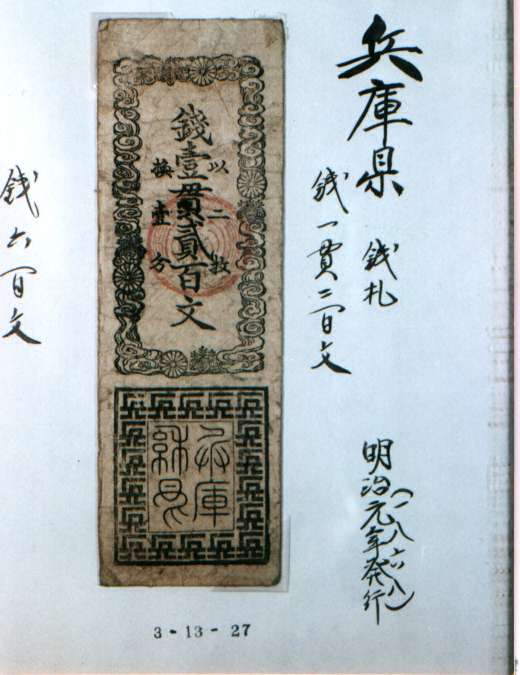 兵庫県
銭札
銭一貫二百文
明治元年発行
(一八六八)
以二枚
錢壹貫貳百文
換壹分
兵庫
銭六百文
3-13-27